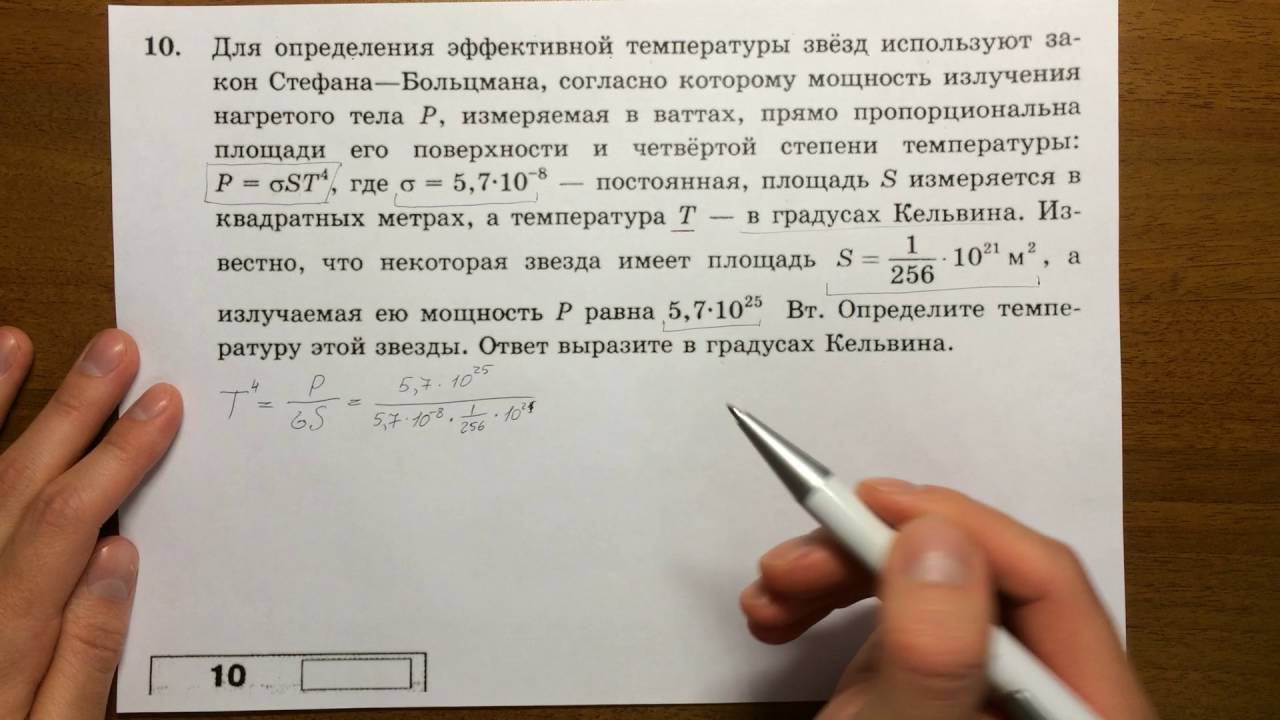 10. Для определения эффективной температуры звёзд используют за-
кон Стефана—Больцмана, согласно которому мощность излучения
нагретого тела P, измеряемая в ваттах, прямо пропорциональна
площади его поверхности и четвёртой степени температуры:
P = σST⁴, где σ = 5,7·10⁻⁸ — постоянная, площадь S измеряется в
квадратных метрах, а температура T — в градусах Кельвина. Из-
вестно, что некоторая звезда имеет площадь S = 1/256 · 10²¹ м², а
излучаемая ею мощность P равна 5,7·10²⁵ Вт. Определите темпе-
ратуру этой звезды. Ответ выразите в градусах Кельвина.
T⁴ = P/σS = 5,7·10²⁵/5,7·10⁻⁸·1/256·10²¹
10